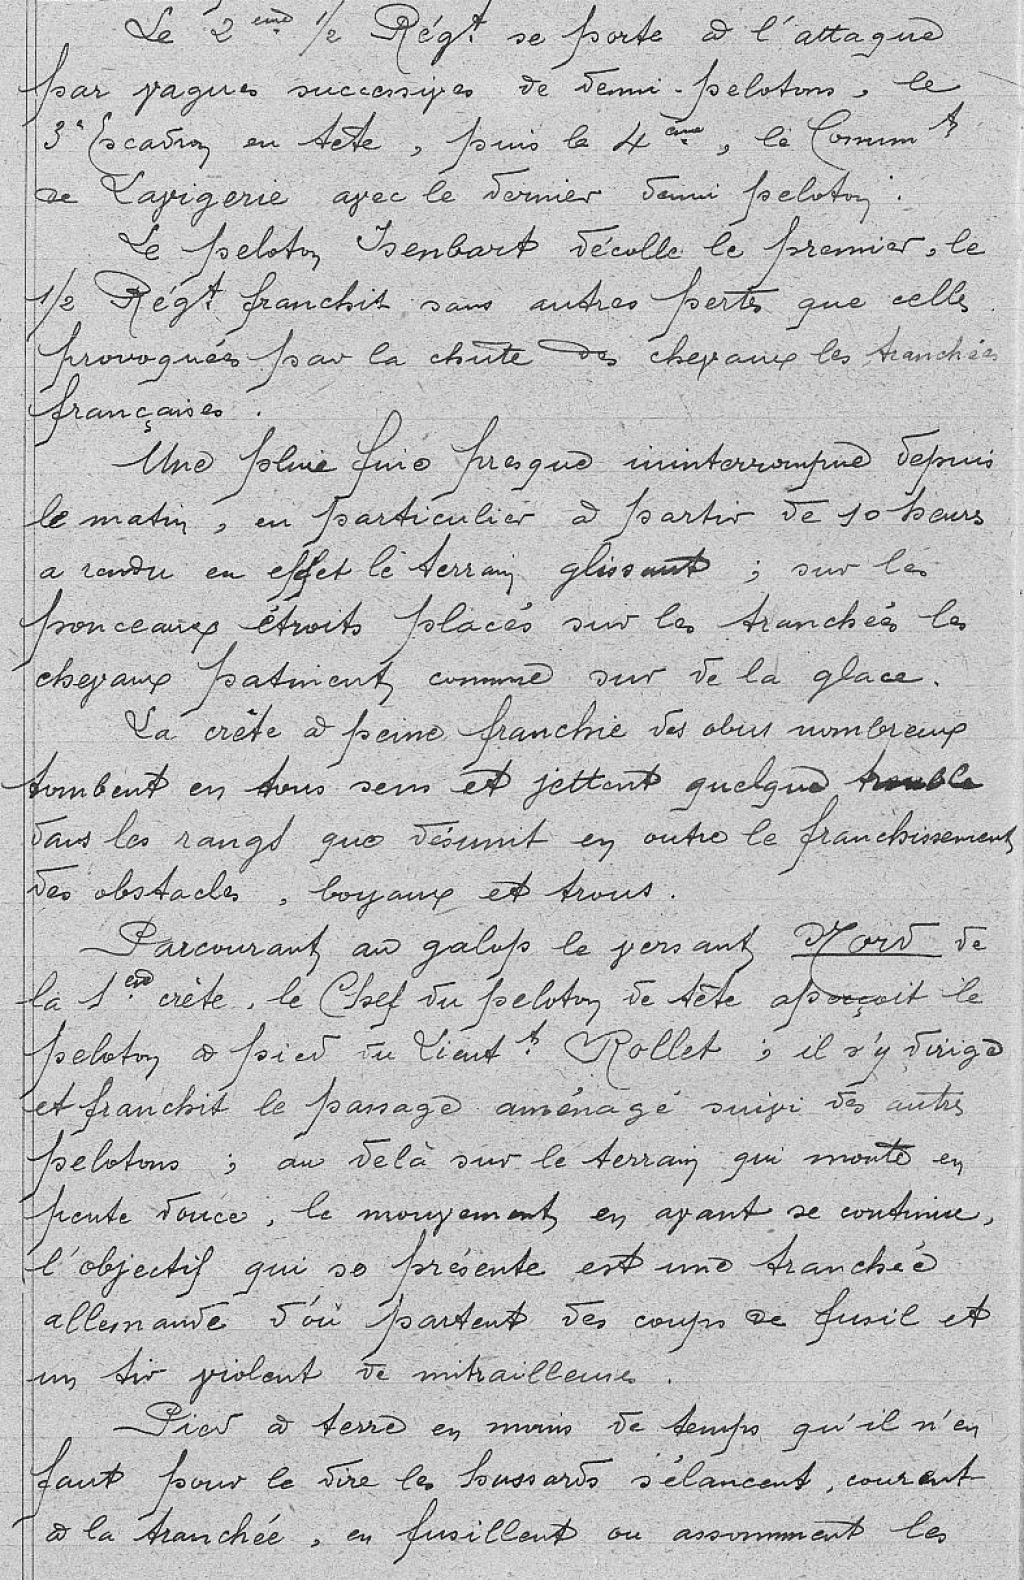 Le 2ème 1/2 Régt se porte à l'attaque
par vagues successives de demi-pelotons, le
3e Escadron en tête, puis le 4ème, le Commt
de Lavigerie avec le dernier demi peloton.
Le peloton Isenbart décolle le premier, le
1/2 Régt franchit sans autres pertes que celles
provoquées par la chute des chevaux les tranchées
françaises.
Une pluie fine presque ininterrompue depuis
le matin, en particulier à partir de 10 heures
a rendu en effet le terrain glissant ; sur les
ponceaux étroits placés sur les tranchées les
chevaux patinent comme sur de la glace.
La crête à peine franchie des obus nombreux
tombent en tous sens et jettent quelque trouble
dans les rangs que désunit en outre le franchissement
des obstacles, boyaux et trous.
Parcourant au galop le versant Nord de
la 1ère crête, le Chef du peloton de tête aperçoit le
peloton à pied du Lieutt Rollet ; il s'y dirige
et franchit le passage aménagé suivi des autres
pelotons ; au delà sur le terrain qui monte en
pente douce, le mouvement en avant se continue,
l'objectif qui se présente est une tranchée
allemande d'où partent des coups de fusil et
un tir violent de mitrailleuses.
Pied à terre en moins de temps qu'il n'en
faut pour le dire les hussards s'élancent, courent
à la tranchée, en fusillent ou assomment les